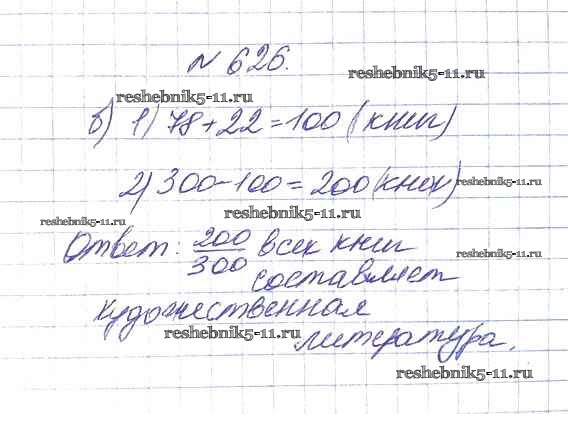 № 626.
reshebnik5-11.ru
reshebnik5-11.ru
б) 1) 78+22=100 (книг)
2) 300-100=200 (книг)
reshebnik5-11.ru
reshebnik5-11.ru
reshebnik5-11.ru
Ответ: 200/300 всех книг
reshebnik5-11.ru
составляет
художественная
reshebnik5-11.ru
литература.
reshebnik5-11.ru